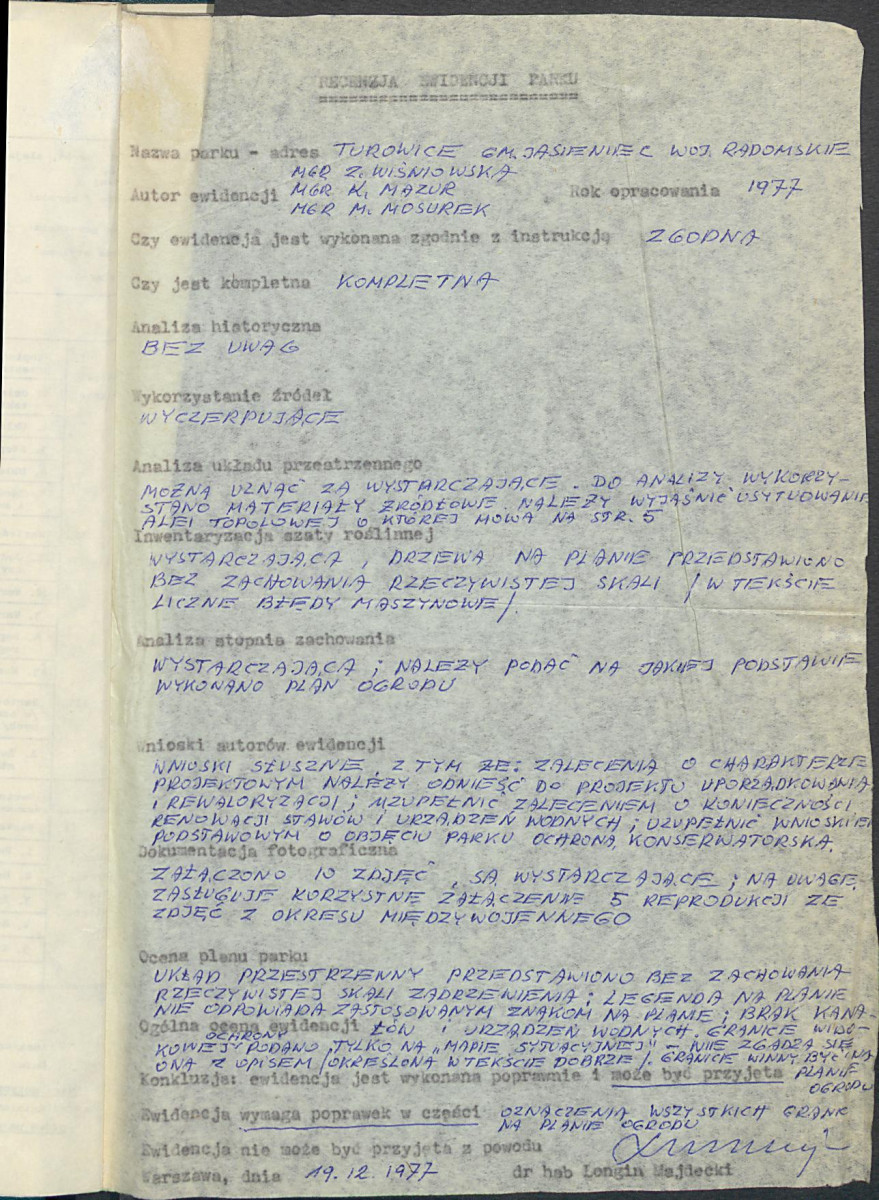 RECENZJA EWIDENCJI PARKU
Nazwa parku - adres TUROWICE GM. JASIENIEC WOJ. RADOMSKIE
MGR Z. WIŚNIOWSKA
Autor ewidencji MGR K. MAZUR Rok opracowania 1977
MGR M. MOSUREK
Czy ewidencja jest wykonana zgodnie z instrukcją ZGODNA
Czy jest kompletna KOMPLETNA
Analiza historyczna
BEZ UWAG
Wykorzystanie źródeł
WYCZERPUJĄCE
Analiza układu przestrzennego
MOŻNA UZNAĆ ZA WYSTARCZAJĄCE. DO ANALIZY WYKORZY-
STANO MATERIAŁY ŹRÓDŁOWE. NALEŻY WYJAŚNIĆ USYTUOWANIE
ALEI TOPOLOWEJ O KTÓREJ MOWA NA STR. 5
Inwentaryzacja szaty roślinnej
WYSTARCZAJĄCA, DRZEWA NA PLANIE PRZEDSTAWIONO
BEZ ZACHOWANIA RZECZYWISTEJ SKALI /W TEKŚCIE
LICZNE BŁĘDY MASZYNOWE/.
Analiza stopnia zachowania
WYSTARCZAJĄCA; NALEŻY PODAĆ NA JAKIEJ PODSTAWIE
WYKONANO PLAN OGRODU
Wnioski autorów ewidencji
WNIOSKI SŁUSZNE, Z TYM ŻE: ZALECENIA O CHARAKTERZE
PROJEKTOWYM NALEŻY ODNIEŚĆ DO PROJEKTU UPORZĄDKOWANIA
I REWALORYZACJI; UZUPEŁNIĆ ZALECENIEM O KONIECZNOŚCI
RENOWACJI STAWÓW I URZĄDZEŃ WODNYCH; UZUPEŁNIĆ WNIOSKIEM
PODSTAWOWYM O OBJĘCIU PARKU OCHRONĄ KONSERWATORSKĄ.
Dokumentacja fotograficzna
ZAŁĄCZONO 10 ZDJĘĆ, SĄ WYSTARCZAJĄCE; NA UWAGĘ
ZASŁUGUJE KORZYSTNE ZAŁĄCZENIE 5 REPRODUKCJI ZE
ZDJĘĆ Z OKRESU MIĘDZYWOJENNEGO
Ocena planu parku
UKŁAD PRZESTRZENNY PRZEDSTAWIONO BEZ ZACHOWANIA
RZECZYWISTEJ SKALI ZADRZEWIENIA; LEGENDA NA PLANIE
NIE ODPOWIADA ZASTOSOWANYM ZNAKOM NA PLANIE; BRAK KANA-
Ogólna ocena ewidencji ŁÓW I URZĄDZEŃ WODNYCH. GRANICE WIDO-
KOWEJ OCHRONY PODANO TYLKO NA „MAPIE SYTUACYJNEJ" - NIE ZGADZA SIĘ
ONA Z OPISEM /OKREŚLONA W TEKŚCIE DOBRZE/. GRANICE WINNY BYĆ NA
Konkluzja: ewidencja jest wykonana poprawnie i może być przyjęta PLANIE
OGRODU
Ewidencja wymaga poprawek w części OZNACZENIA WSZYSTKICH GRANIC
NA PLANIE OGRODU
Ewidencja nie może być przyjęta z powodu
Warszawa, dnia 19.12.1977 dr hab Longin Majdecki